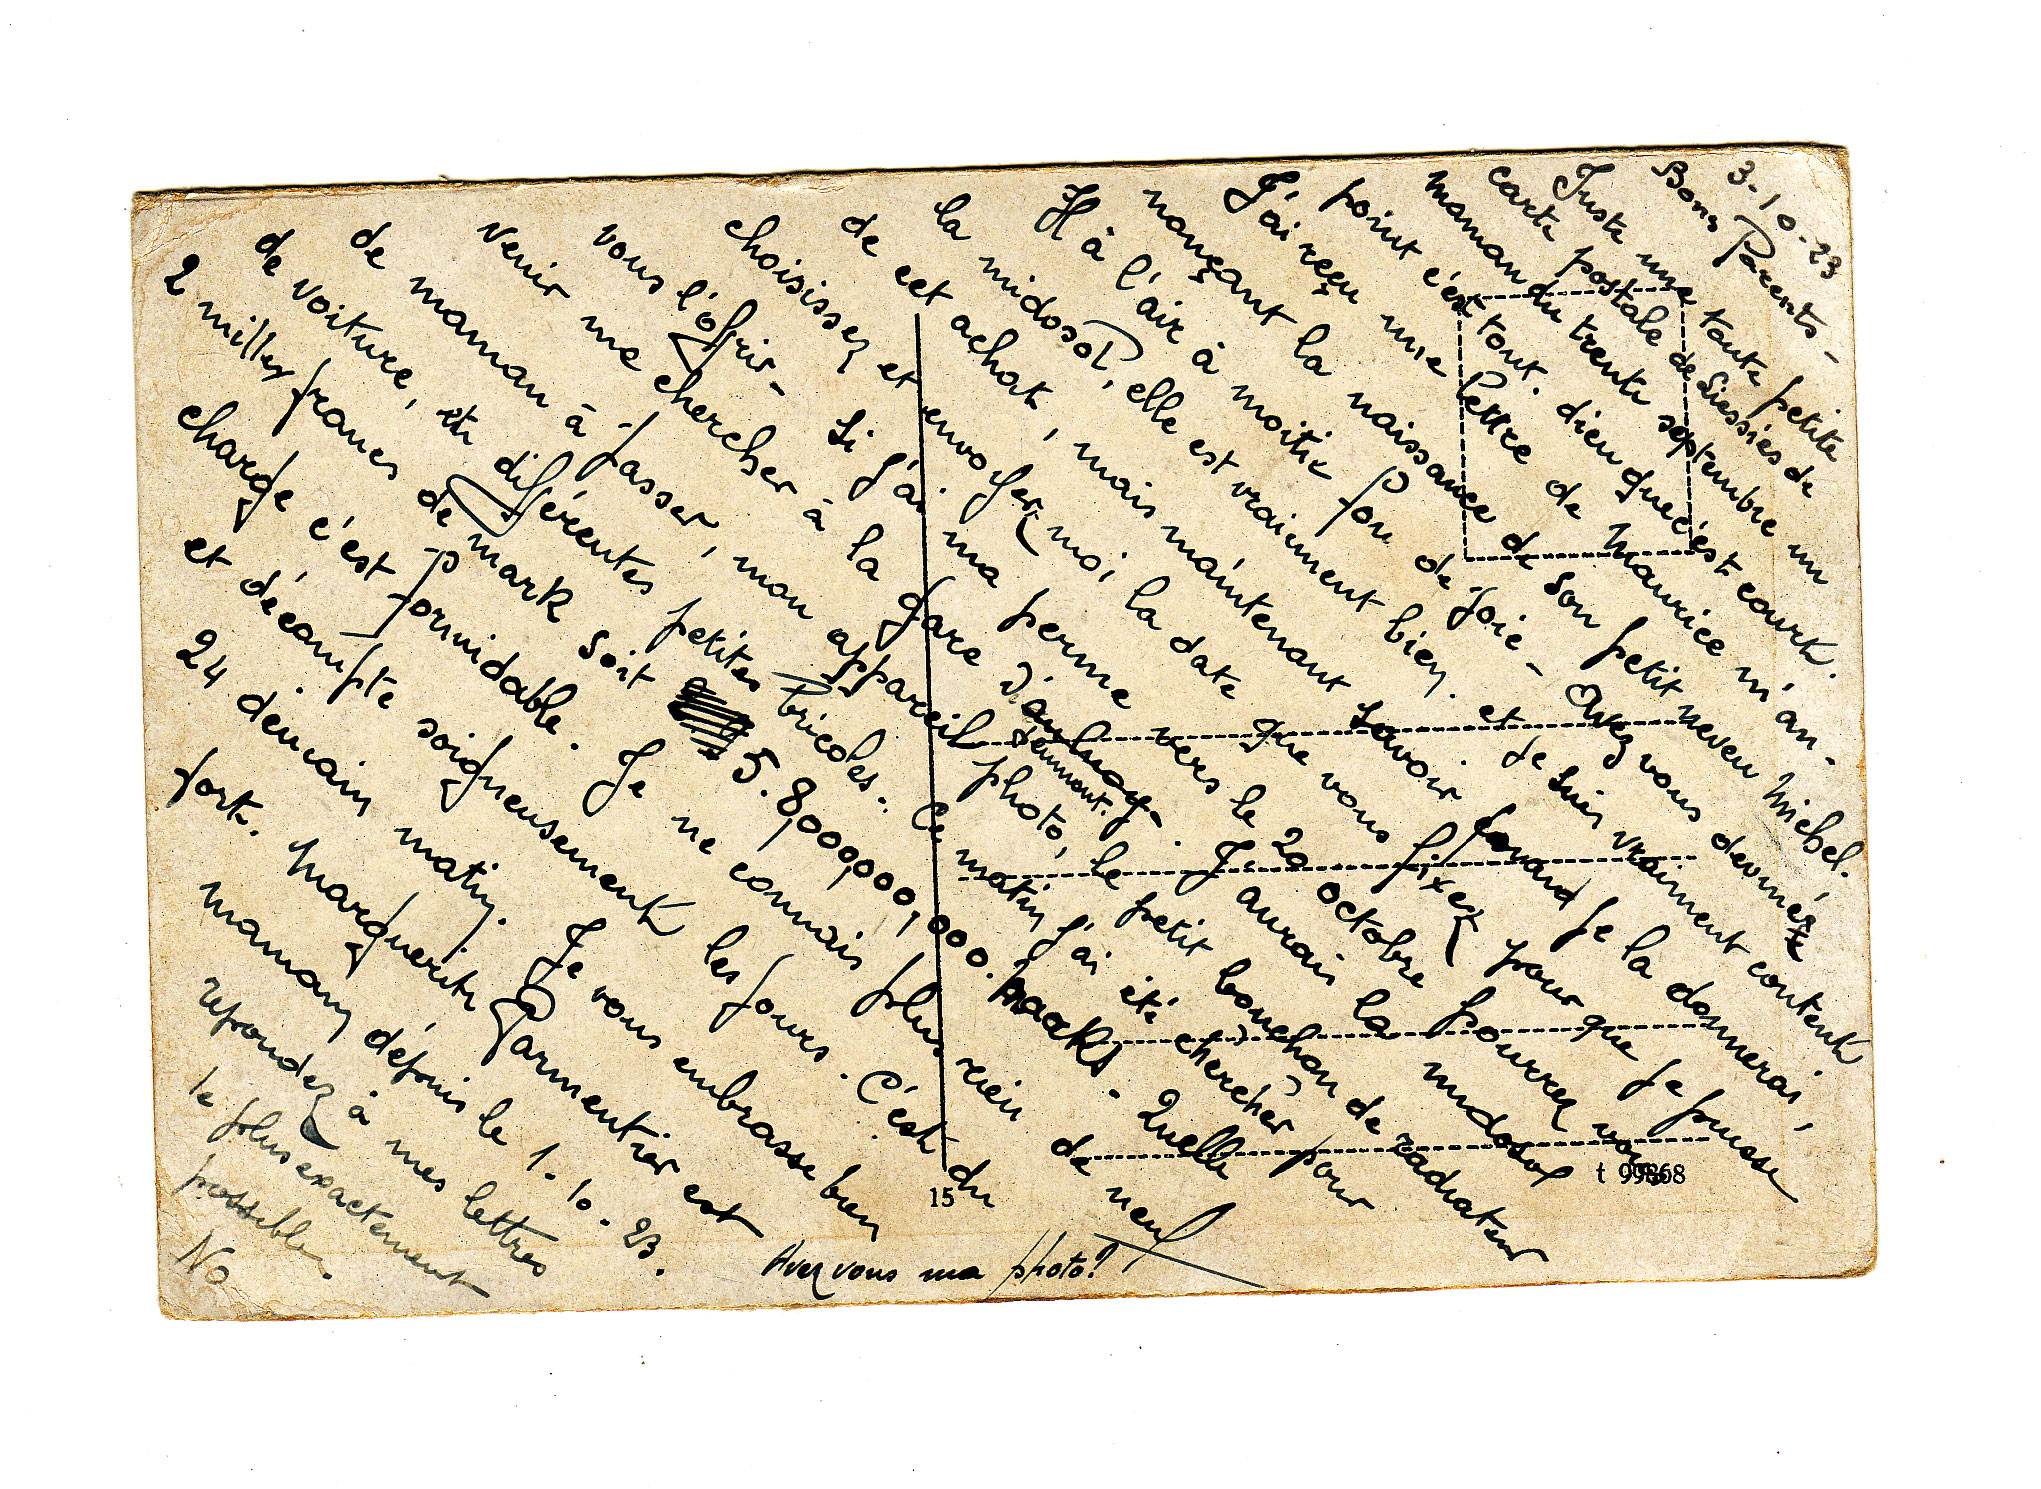 3-10-23
Bons Parents -
Juste une toute petite
carte postale de Liessies de
maman du trente septembre un
point c'est tout. dieu que c'est court.
J'ai reçu une lettre de Maurice m'an-
nonçant la naissance de son petit neveu Michel.
Il à l'air à moitié fou de joie - Avez vous deviné
la midosol, elle est vraiment bien. et je suis vraiment content
de cet achat, mais maintenant savoir quand je la donnerai,
choisissez et envoyez moi la date que vous fixez pour que je puisse
vous l'offrir - Si j'ai ma perme vers le 20 octobre pourrez vous
venir me chercher à la gare d'aulnoye. J'aurais la midosol
Jeumont.
de maman à passer, mon appareil photo, le petit bouchon de radiateur
de voiture, et différentes petites bricoles. Ce matin j'ai été chercher pour
2 milles francs de mark soit 5.8,000,000,000. marks - Quelle
charge c'est formidable. Je ne connais plus rien de neuf
et décompte soigneusement les jours. C'est du
24 demain matin. Je vous embrasse bien
fort. Marguerite Parmentier est
maman depuis le 1.10.23.
repondez à mes lettres
le plus exactement
possible.
No
Avez vous ma photo?
15